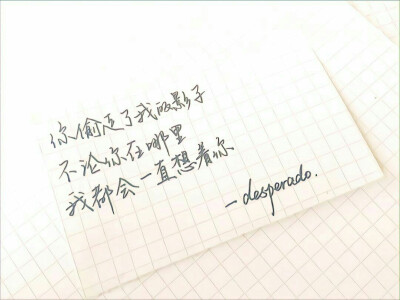 你偷走了我的影子
不论你在哪里
我都会一直想着你
— desperado.